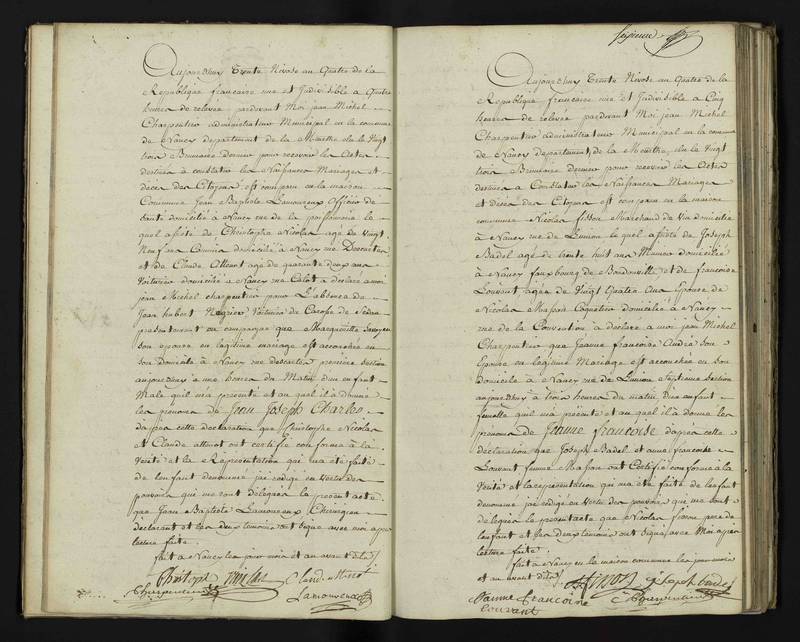 Aujourdhuy Trente Nivose an Quatre de la
Republique francaise une et Indivisible a Quatre
heures de relevée pardevant Moi jean Michel
Charpentier administrateur Municipal en la commune
de Nancy departement de la Meurthe elu le Vingt
trois Brumaire dernier pour recevoir les Actes
destinés a constater les Naissances Mariages et
deces des Citoyens est comparu en la maison
Commune Jean Baptiste Lamoureux Officier de
Santé domicilié a Nancy rue de la poissonnerie le
quel assisté de Christophe Nicolas agé de Vingt
Neuf ans domicilié a Nancy rue Descartes
et de Claude age de quarante deux ans
Voiturier domicilié a Nancy rue Calot a déclaré a moi
jean Michel charpentier pour L'absence de
Jean hubert Voiturier
presentement en campagne que Marguerite
son epouse en legitime mariage est accouchée en
son Domicile à Nancy rue descartes premiere section
aujourdhuy a une heures du Matin d'un enfant
Male qu'il m'a presenté et au quel il a donné
les prenoms de Jean Joseph Charles
d'apres cette declaration que Christophe Nicolas
et Claude ont certifié conforme à la
Verité et la Représentation qui m'a été faite
de l'enfant denommé j'ai redigé en vertu des
pouvoirs qui me sont délégués le present acte
que Jean Baptiste Lamoureux Chirurgien
déclarant et les deux temoins ont signé avec moi apres
lecture faite.
fait a Nancy les jour mois et an avant dits
Christoph Nicolas Claud
Charpentier Lamoureux
Aujourdhuy Trente Nivose an Quatre de la
Republique francaise une et Indivisible a Cinq
heures de relevée pardevant Moi jean Michel
Charpentier administrateur Municipal en la commune
de Nancy departement de la Meurthe elu le Vingt
trois Brumaire dernier pour recevoir les Actes
destinés a Constater les Naissances Mariages
et déces des Citoyens est comparu en la maison
commune Nicolas Marchand de Vin domicilié
à Nancy rue de Lunion le quel assisté de Joseph
Badel agé de trente huit ans domicilié
à Nancy fauxbourg de et de francoise
Louvant agée de Vingt Quatre ans Epouse de
Nicolas Masson domicilié à Nancy
rue de la Convention à déclaré a moi jean Michel
Charpentier que Jeanne francoise André son
Epouse en legitime Mariage est accouchée en son
Domicile à Nancy rue de Lunion Septieme section
aujourdhuy à trois heures du matin d'un enfant
femelle quil m'a présenté et au quel il a donné les
prénoms de Jeanne francoise d'apres cette
déclaration que Joseph Badel et anne francoise
Louvant femme Masson ont Certifié conforme a la
Verité et la representation qui m'a été faite de l'enfant
denommé j'ai redigé en vertu des pouvoirs qui me sont
délegués le present acte que Nicolas pere de
l'enfant et les deux temoins ont signé avec Moi apres
lecture faite.
fait a Nancy en la maison commune les jour mois
et an avant dits
joseph badel
anne francoise Charpentier
Louvant